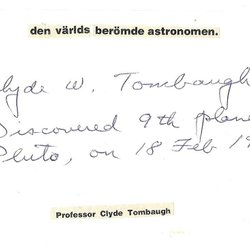 den världs berömde astronomen.
lyde W. Tombaugh
Discovered 9th plane
Pluto, on 18 Feb 19
Professor Clyde Tombaugh